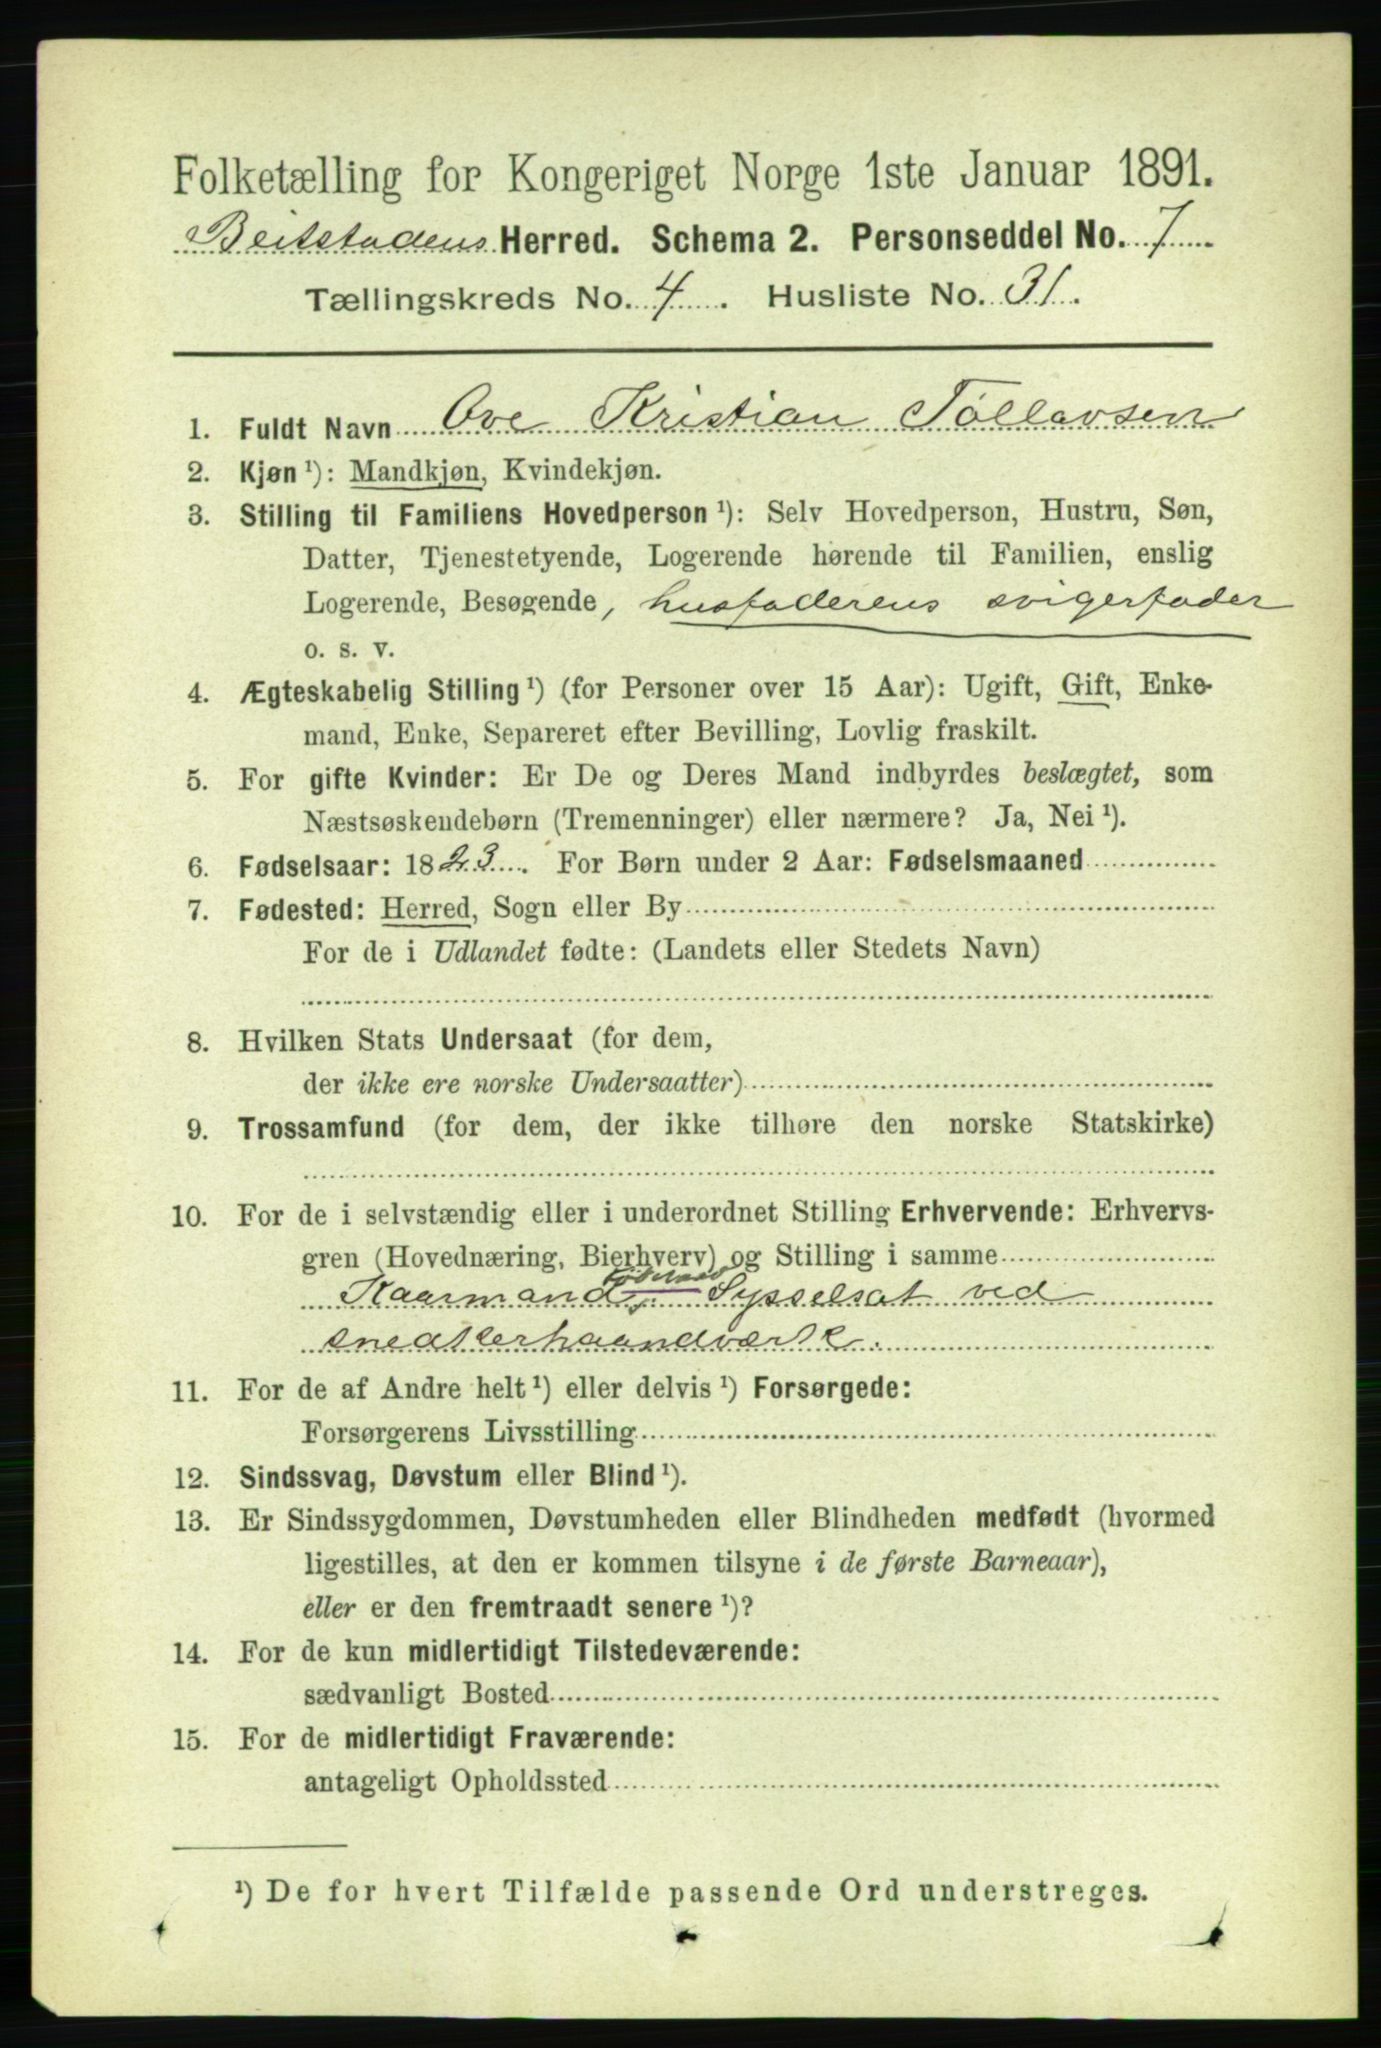 Folketælling for Kongeriget Norge 1ste Januar 1891.
Beitstadens Herred. Schema 2. Personseddel No. 7
Tællingskreds No. 4. Husliste No. 31.
1. Fuldt Navn Ove Kristian Tollevsen
2. Kjøn ¹): Mandkjøn, Kvindekjøn.
3. Stilling til Familiens Hovedperson ¹): Selv Hovedperson, Hustru, Søn,
Datter, Tjenestetyende, Logerende hørende til Familien, enslig
Logerende, Besøgende, husfaderens svigerfader
o. s. v.
4. Ægteskabelig Stilling ¹) (for Personer over 15 Aar): Ugift, Gift, Enke-
mand, Enke, Separeret efter Bevilling, Lovlig fraskilt.
5. For gifte Kvinder: Er De og Deres Mand indbyrdes beslægtet, som
Næstsøskendebørn (Tremenninger) eller nærmere? Ja, Nei ¹).
6. Fødselsaar: 1823. For Børn under 2 Aar: Fødselsmaaned
7. Fødested: Herred, Sogn eller By
For de i Udlandet fødte: (Landets eller Stedets Navn)
8. Hvilken Stats Undersaat (for dem,
der ikke ere norske Undersaatter)
9. Trossamfund (for dem, der ikke tilhøre den norske Statskirke)
10. For de i selvstændig eller i underordnet Stilling Erhvervende: Erhvervs-
gren (Hovednæring, Bierhverv) og Stilling i samme
Kaarmand, Sysselsat ved
snedkerhaandværk.
11. For de af Andre helt ¹) eller delvis ¹) Forsørgede:
Forsørgerens Livsstilling
12. Sindssvag, Døvstum eller Blind ¹).
13. Er Sindssygdommen, Døvstumheden eller Blindheden medfødt (hvormed
ligestilles, at den er kommen tilsyne i de første Barneaar),
eller er den fremtraadt senere ¹)?
14. For de kun midlertidigt Tilstedeværende:
sædvanligt Bosted
15. For de midlertidigt Fraværende:
antageligt Opholdssted
¹) De for hvert Tilfælde passende Ord understreges.